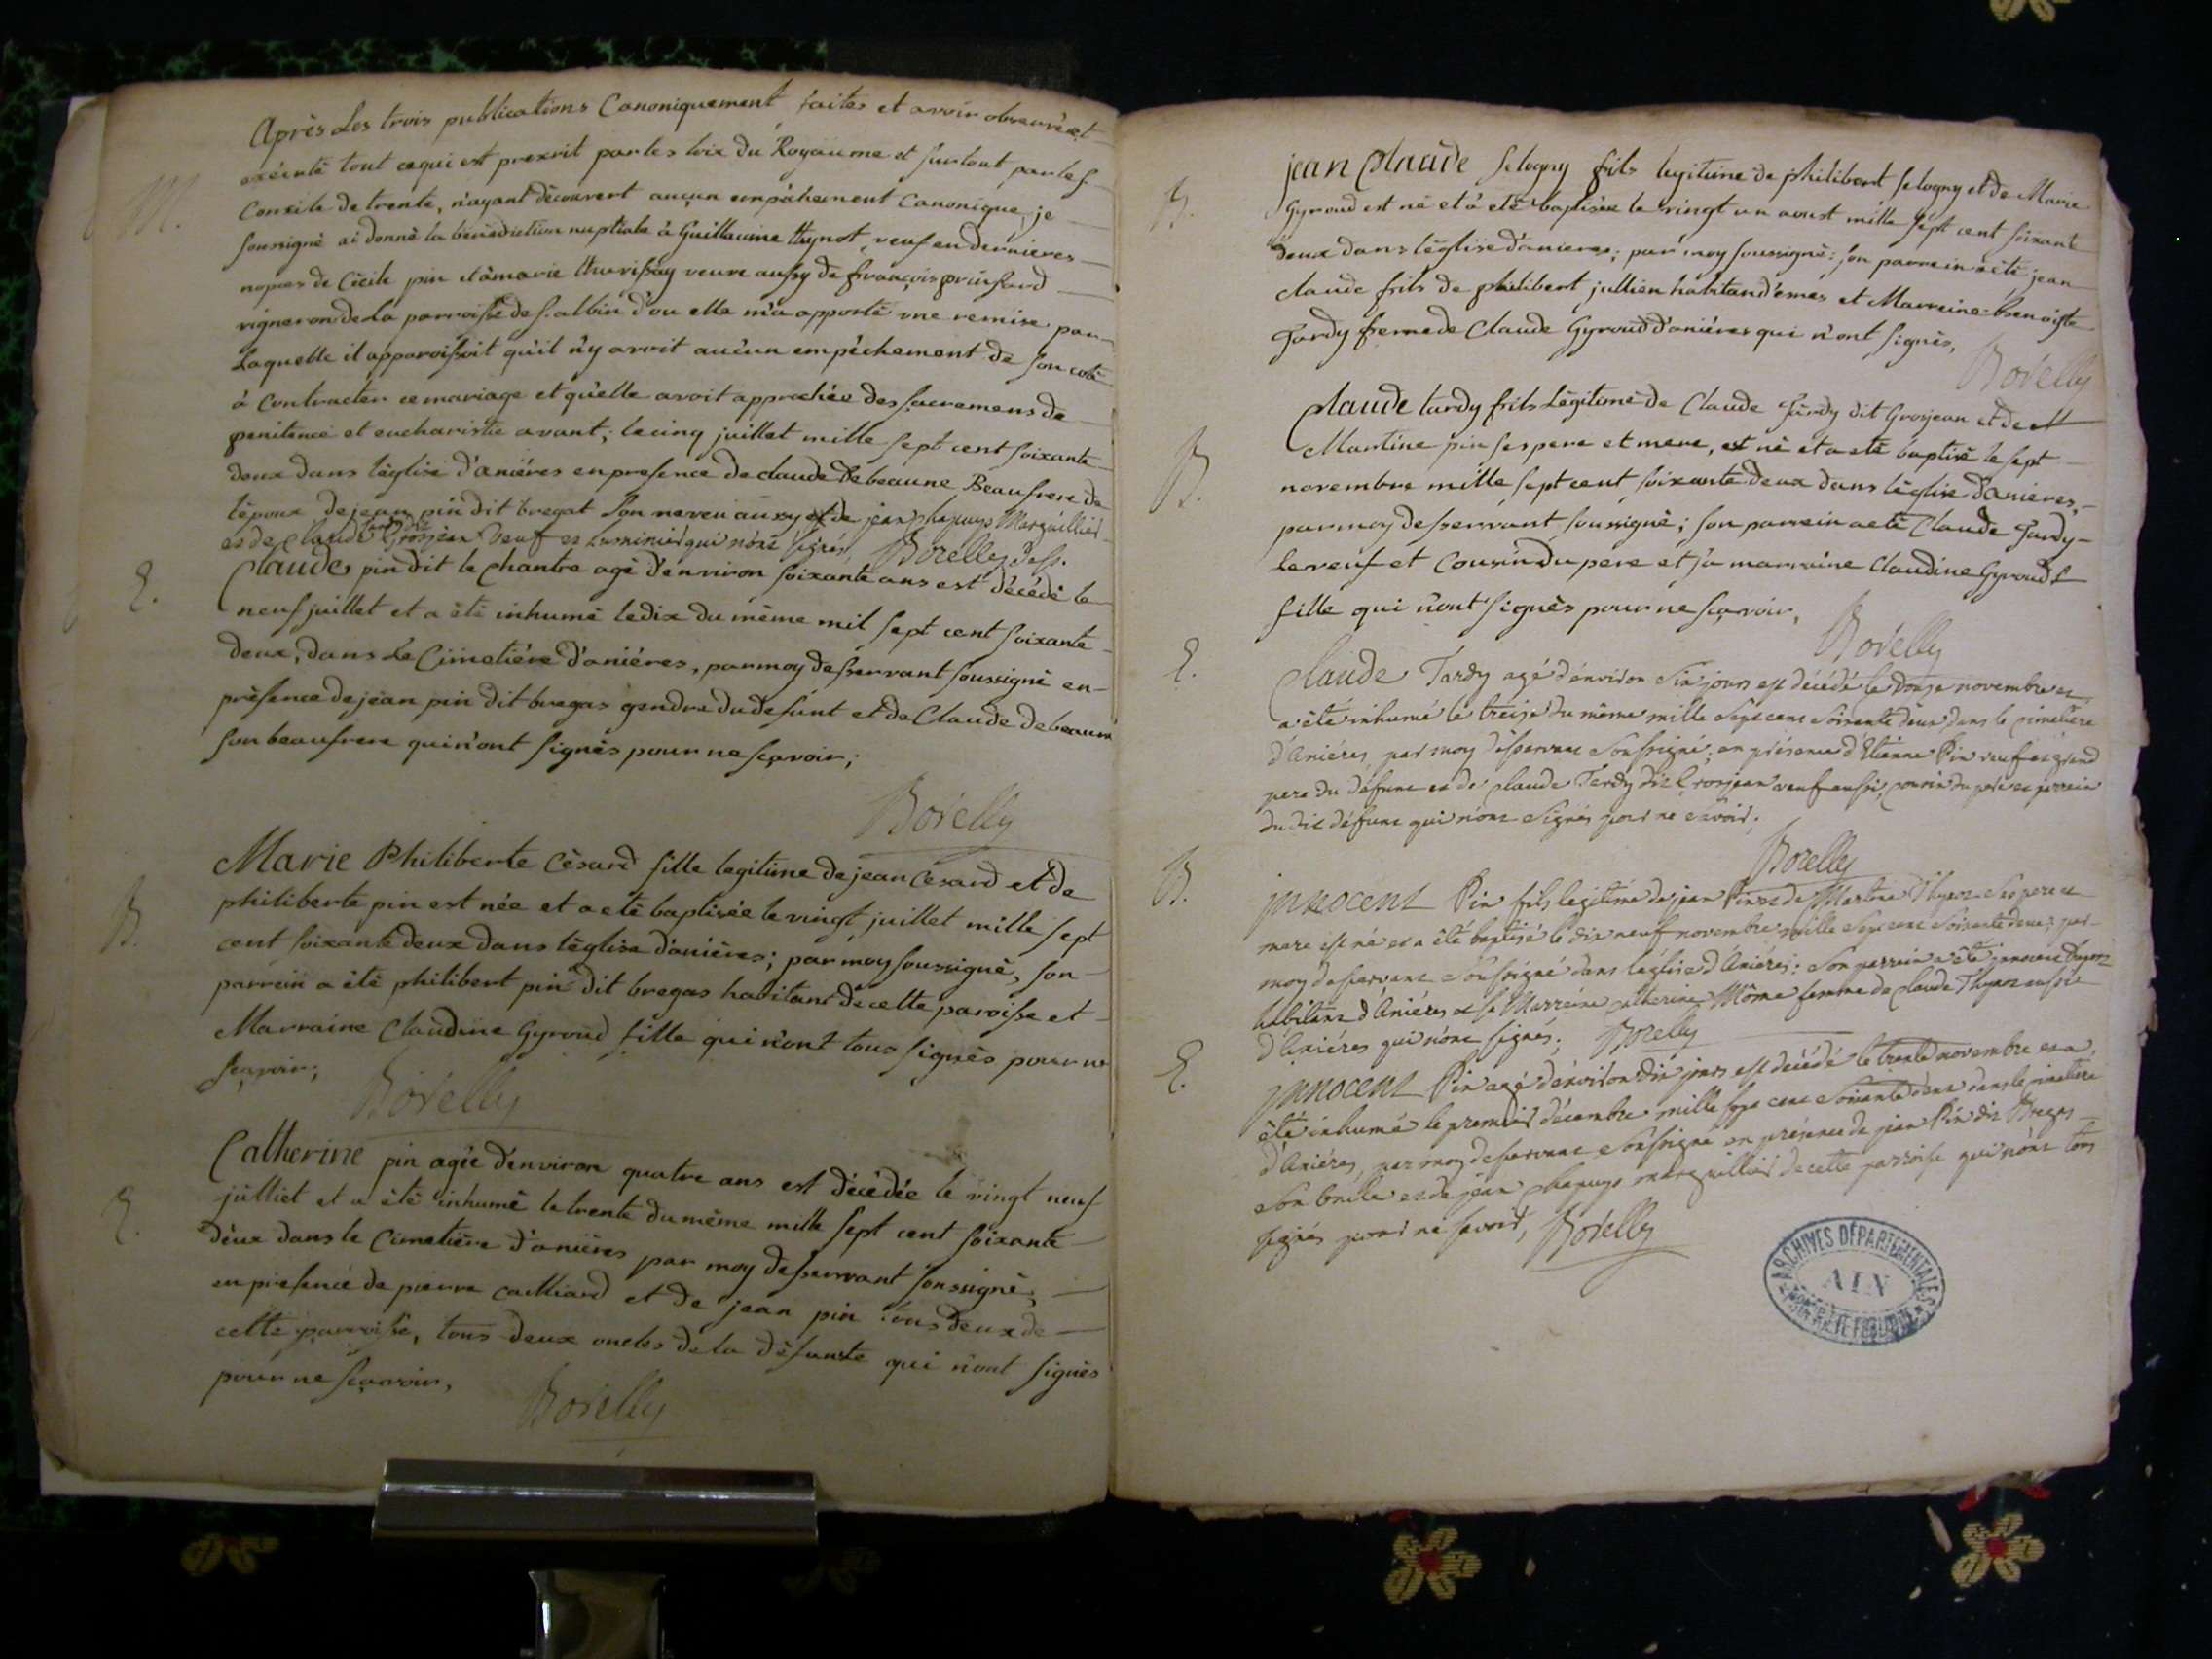 M.
Après Les trois publications Canoniquement faites et avoir observé et
exécuté tout ce qui est prescrit par les loix du Royaume et surtout par le s.
Concile de trente, n'ayant découvert aucun empêchement Canonique, je
soussigné ai donné la bénédiction nuptiale à Guillaume thynot, veuf en dernieres
nopces de Cécile pin et à marie thurissay veuve aussy de françois
vigneron de La parroisse de s. albin d'ou elle m'a apporté une remise par
Laquelle il apparoissoit qu'il n'y avoit aucun empêchement de son coté
à Contracter ce mariage et qu'elle avoit approchée des sacremens de
penitence et eucharistie avant; le cinq juillet mille sept cent soixante
deux dans l'église d'aniéres en presence de claude Debeaune Beaufrere de
l'époux de jean pin dit bregat son neveu aussy et de jean chapuys Marguillier
et de Claude tardy dit Grosjean veuf et Luminier qui n'ont signés, Borelly dess.
E.
Claude pin dit le Chantre agé d'environ soixante ans est décédé le
neuf juillet et a été inhumé le dix du même mil sept cent soixante
deux, dans Le Cimetiére d'aniéres, par moy desservant soussigné en
présence de jean pin dit bregas gendre du defunt et de Claude debeaune
son beaufrere qui n'ont signés pour ne sçavoir;
Borelly
B.
Marie Philiberte Césard fille legitime de jean Césard et de
philiberte pin est née et a eté baptisée le vingt juillet mille sept
cent soixante deux dans l'église d'aniéres; par moy soussigné, son
parrein a été philibert pin dit bregas habitant de cette paroisse et
Marraine Claudine Gyroud fille qui n'ont tous signés pour ne
sçavoir;
Borelly
E.
Catherine pin agée d'environ quatre ans est décédée le vingt neuf
juilliet et a été inhumé le trente du même mille sept cent soixante
deux dans le Cimetière d'aniéres par moy desservant soussigné,
en presence de pierre cailliard et de jean pin tous deux de
cette parroisse, tous deux oncles de la défunte qui n'ont signés
pour ne sçavoir,
Borelly
B.
jean Claude selogny fils legitime de philibert selogny et de Marie
Gyroud est né et à eté baptisée le vingt un aoust mille sept cent soixante
deux dans l'église d'anieres; par moy soussigné: son parrein a été jean
claude fils de philibert jullien habitan d'emes et Marreine Benoiste
tardy femme de Claude Gyroud d'aniéres qui n'ont signés,
Borelly
B.
Claude tardy fils Légitime de Claude tardy dit Grosjean et de
Martine pin ses pere et mere, est né et a eté baptisé le sept
novembre mille sept cent soixante deux dans l'église d'aniéres,
par moy desservant soussigné; son parrein a eté Claude tardy
le veuf et Cousin du pere et sa marraine Claudine Gyroud
fille qui n'ont signés pour ne sçavoir,
Borelly
E.
Claude Tardy agé d'environ six jours est décédé le douze novembre et
a été inhumé le treize du même mille sept cent soixante deux dans le cimetiere
d'Aniéres, par moy desservant soussigné, en présence d'Etienne Pin veuf et grand
pere du défunt et de Claude Tardy dit Grosjean veuf aussi, cousin du pere et parrein
du dit défunt qui n'ont signés pour ne savoir;
Borelly
B.
jnnocent Pin fils legitime de jean Pin et de Martine Thynot ses pere et
mere est né et a été baptisé le dix neuf novembre mille sept cent soixante deux; par
moy desservant soussigné dans l'église d'Aniéres: son parrein a été jnnocent thynot
habitant d'Aniéres et sa Marreine catherine Môme femme de Claude Thynot aussi
d'Aniéres qui n'ont signés. Borelly
E.
jnnocent Pin agé d'environ dix jours est décédé le trente novembre et a
été inhumé le premier décembre mille sept cent soixante deux dans le cimetiere
d'Aniéres, par moy desservant soussigné en présence de jean Pin dit Bregas
son oncle et de jean chapuys marguillier de cette parroisse qui n'ont tous
signés pour ne savoir, Borelly
ARCHIVES DÉPARTEMENTALES
AIN